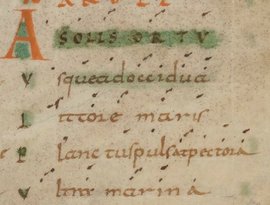 A SOLIS ORTV
V squeadoccidua
L ittore maris
P lanctuspulsatpectora
V ltra marina